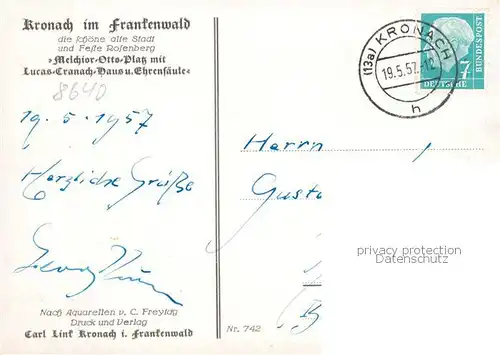 Kronach im Frankenwald
die schöne alte Stadt
und Feste Rosenberg
»Melchior-Otto-Platz mit
Lucas-Cranach-Haus u. Ehrensäule«
8640
19. 5. 1957
Herzliche Grüße
Nach Aquarellen v. C. Freytag
Druck und Verlag
Carl Link Kronach i. Frankenwald
Nr. 742
(13a) KRONACH
19.5.57.-12
h
7
DEUTSCHE
BUNDESPOST
Herrn
privacy protection
Datenschutz